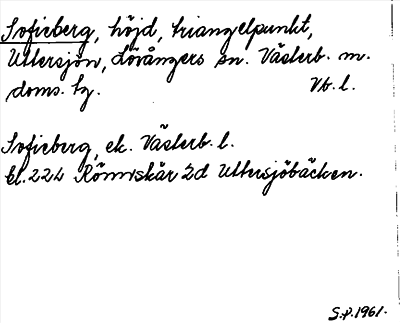 Sofieberg, höjd, triangelpunkt,
Uttersjön, Lövångers sn. Västerb. m.
doms. hg. Vb. l.
Sofieberg, ek. Västerb. l.
bl. 224 Rönnskär 2d Uttersjöbäcken.
S.P. 1961.